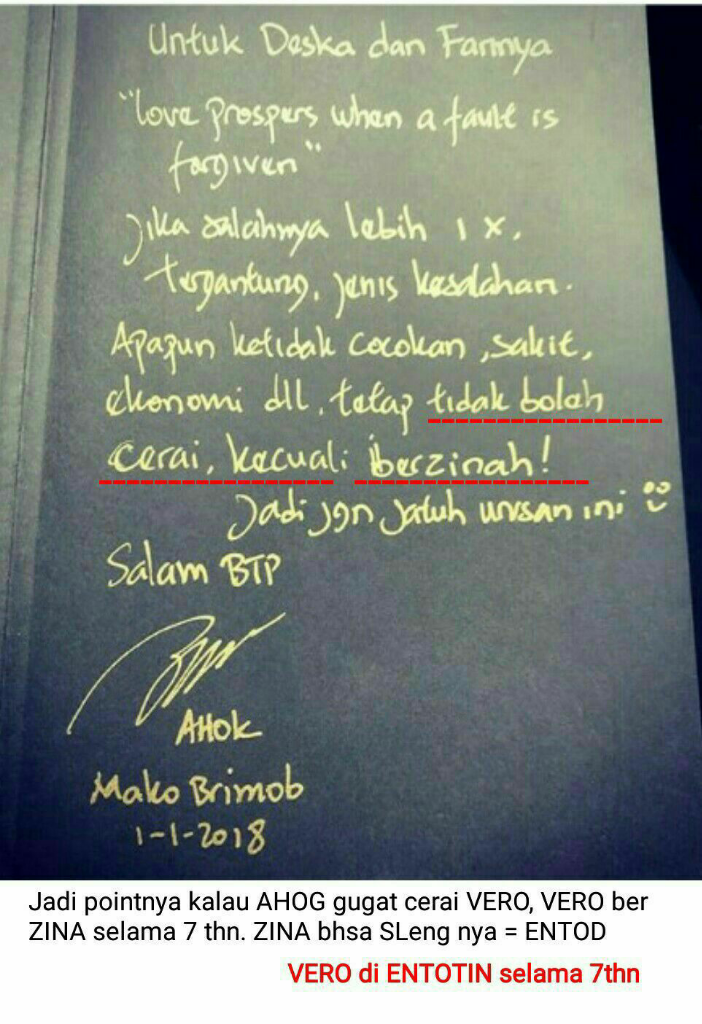 Untuk Deska dan Fannya
"love prospers when a fault is
forgiven"
Jika salahnya lebih 1 x,
tergantung, jenis kesalahan.
Apapun ketidak cocokan, sakit,
ekonomi dll, tetap tidak boleh
cerai, kecuali berzinah!
Jadi jgn jatuh urusan ini
Salam BTP
AHok
Mako Brimob
1-1-2018
Jadi pointnya kalau AHOG gugat cerai VERO, VERO ber
ZINA selama 7 thn. ZINA bhsa SLeng nya = ENTOD
VERO di ENTOTIN selama 7thn